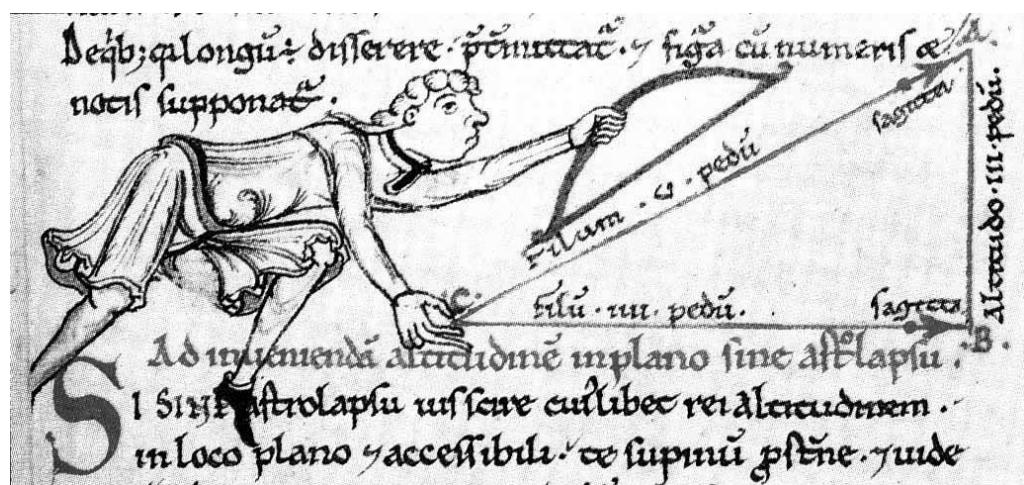 Deq̇b; q̇ longū ÷ disserere. p̄t̄mittat̄. ⁊ figᷓa cū numeris æ
notis supponat̄.
A.
sagitta
Filum · v · pedū
Altitudo · III · pedū.
C.
filū · IIII · pedū.
sagitta
B.
Ad inueniendā altitudinē in plano sine astᷓolapsu.
SI SINE astrolapsu uis scire cuiᷓlibet rei altitudinem.
in loco plano ⁊ accessibili. te supinū ꝓst̄ne. ⁊ uide